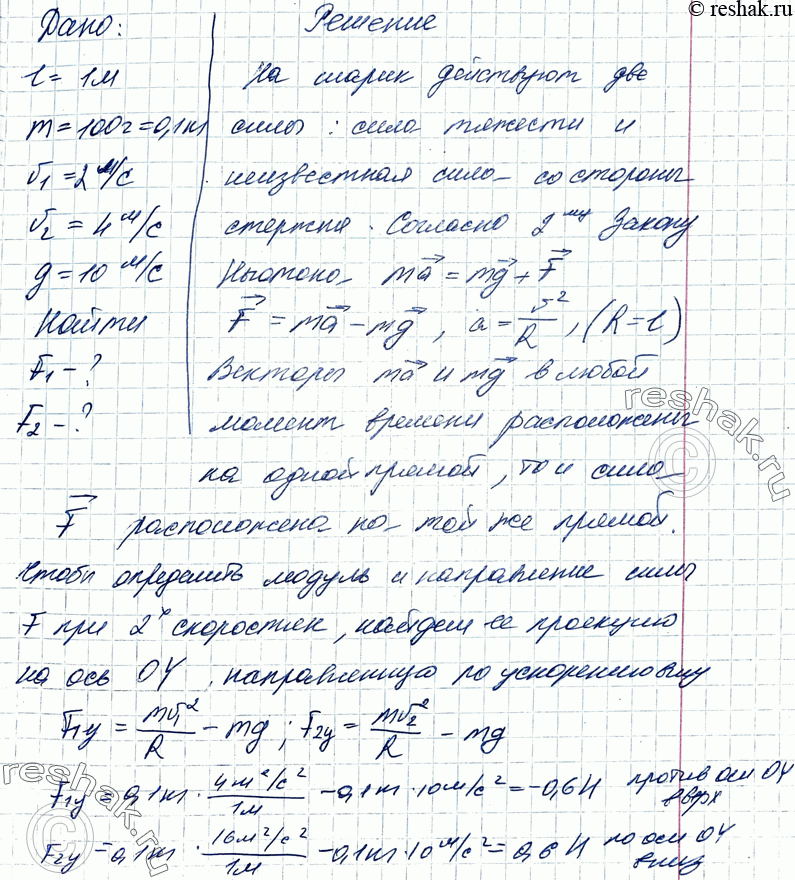 © reshak.ru
Дано: Решение
l = 1м На шарик действуют две
m = 100г = 0,1кг силы: сила тяжести и
v₁ = 2 м/с неизвестная сила со стороны
v₂ = 4 м/с стержня. Согласно 2му Закону
g = 10 м/с Ньютона ma⃗ = mg⃗ + F⃗
Найти F⃗ = ma⃗ - mg⃗, a = v²/R, (R = l)
F₁ - ? Векторы ma⃗ и mg⃗ в любой
F₂ - ? момент времени расположены
на одной прямой, то и сила
F⃗ расположена на той же прямой.
Чтобы определить модуль и направление силы
F при 2х скоростях, найдем ее проекцию
на ось OY, направленную по ускорению вниз
F₁y = mv₁²/R - mg; F₂y = mv₂²/R - mg
F₁y = 0,1кг · 4м²/с²/1м - 0,1кг · 10м/с² = -0,6Н против оси OY вверх
F₂y = 0,1кг · 16м²/с²/1м - 0,1кг · 10м/с² = 0,6Н по оси OY вниз
reshak.ru
reshak.ru